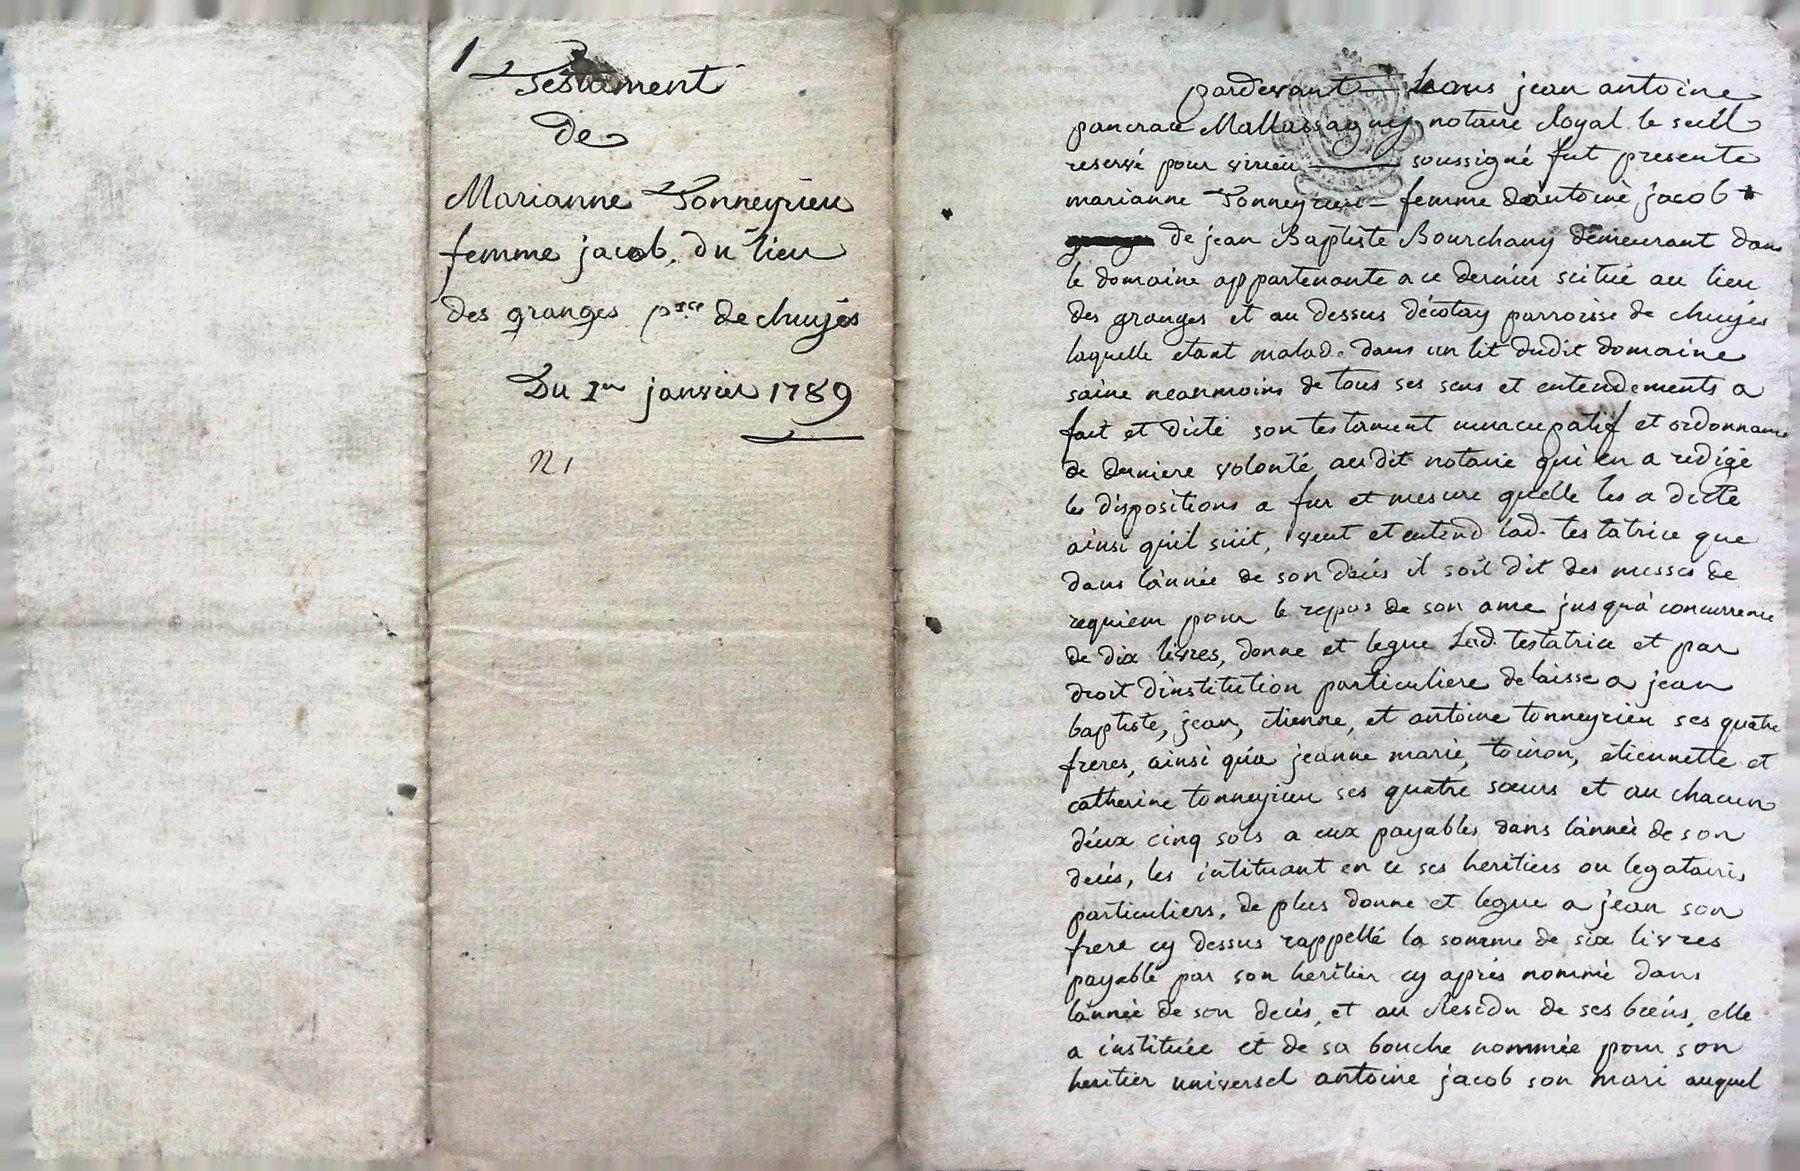 1
Testament
De
Marianne Tonneyrieu
femme jacob, du lieu
des granges psse de chuyés
Du 1er janvier 1789
N 1
pardevant Nous jean antoine
pancrace Mallassagny notaire Royal le seul
reservé pour virieu soussigné fut presente
marianne Tonneyrieu femme d'antoine jacob
de jean Baptiste Bourchany demeurant dans
le domaine appartenante a ce dernier scitué au lieu
des granges et au dessus décotay parroisse de chuyés
laquelle etant malade dans un lit dudit domaine
saine neanmoins de tous ses sens et entendements a
fait et dicté son testament nuncupatif et ordonnance
de derniere volonté audit notaire qui en a redigé
les dispositions a fur et mesure quelle les a dicté
ainsi quil suit, veut et entend lad. testatrice que
dans l'année de son décés il soit dit des messes de
requiem pour le repos de son ame jusqu'a concurrence
de dix livres, donne et legue Lad. testatrice et par
droit d'institution particuliere delaisse a jean
baptiste, jean, etienne, et antoine tonneyrieu ses quatre
freres, ainsi qu'a jeanne marie, toinon, étiennette et
catherine tonneyrieu ses quatre sœurs et au chacun
d'eux cinq sols a eux payables dans l'année de son
decés, les intituant en ce ses heritiers ou legataires
particuliers, de plus donne et legue a jean son
frere cy dessus rappellé la somme de six livres
payable par son heritier cy aprés nommé dans
l'année de son decés, et au Residu de ses biens, elle
a instituée et de sa bouche nommée pour son
heritier universel antoine jacob son mari auquel